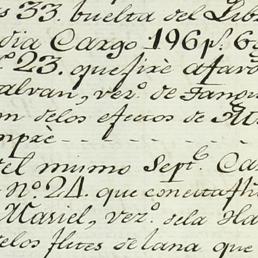 s 33. buelta del Lib
dia Cargo 196 p.s 6
23. que fixè a favo
alvan, vez.º de
n delos efectos de
mprè
el mismo Sept.e Ca
Nº 24. que conceta
Masiel, vez.º dela Ha
elos fletes de lana que